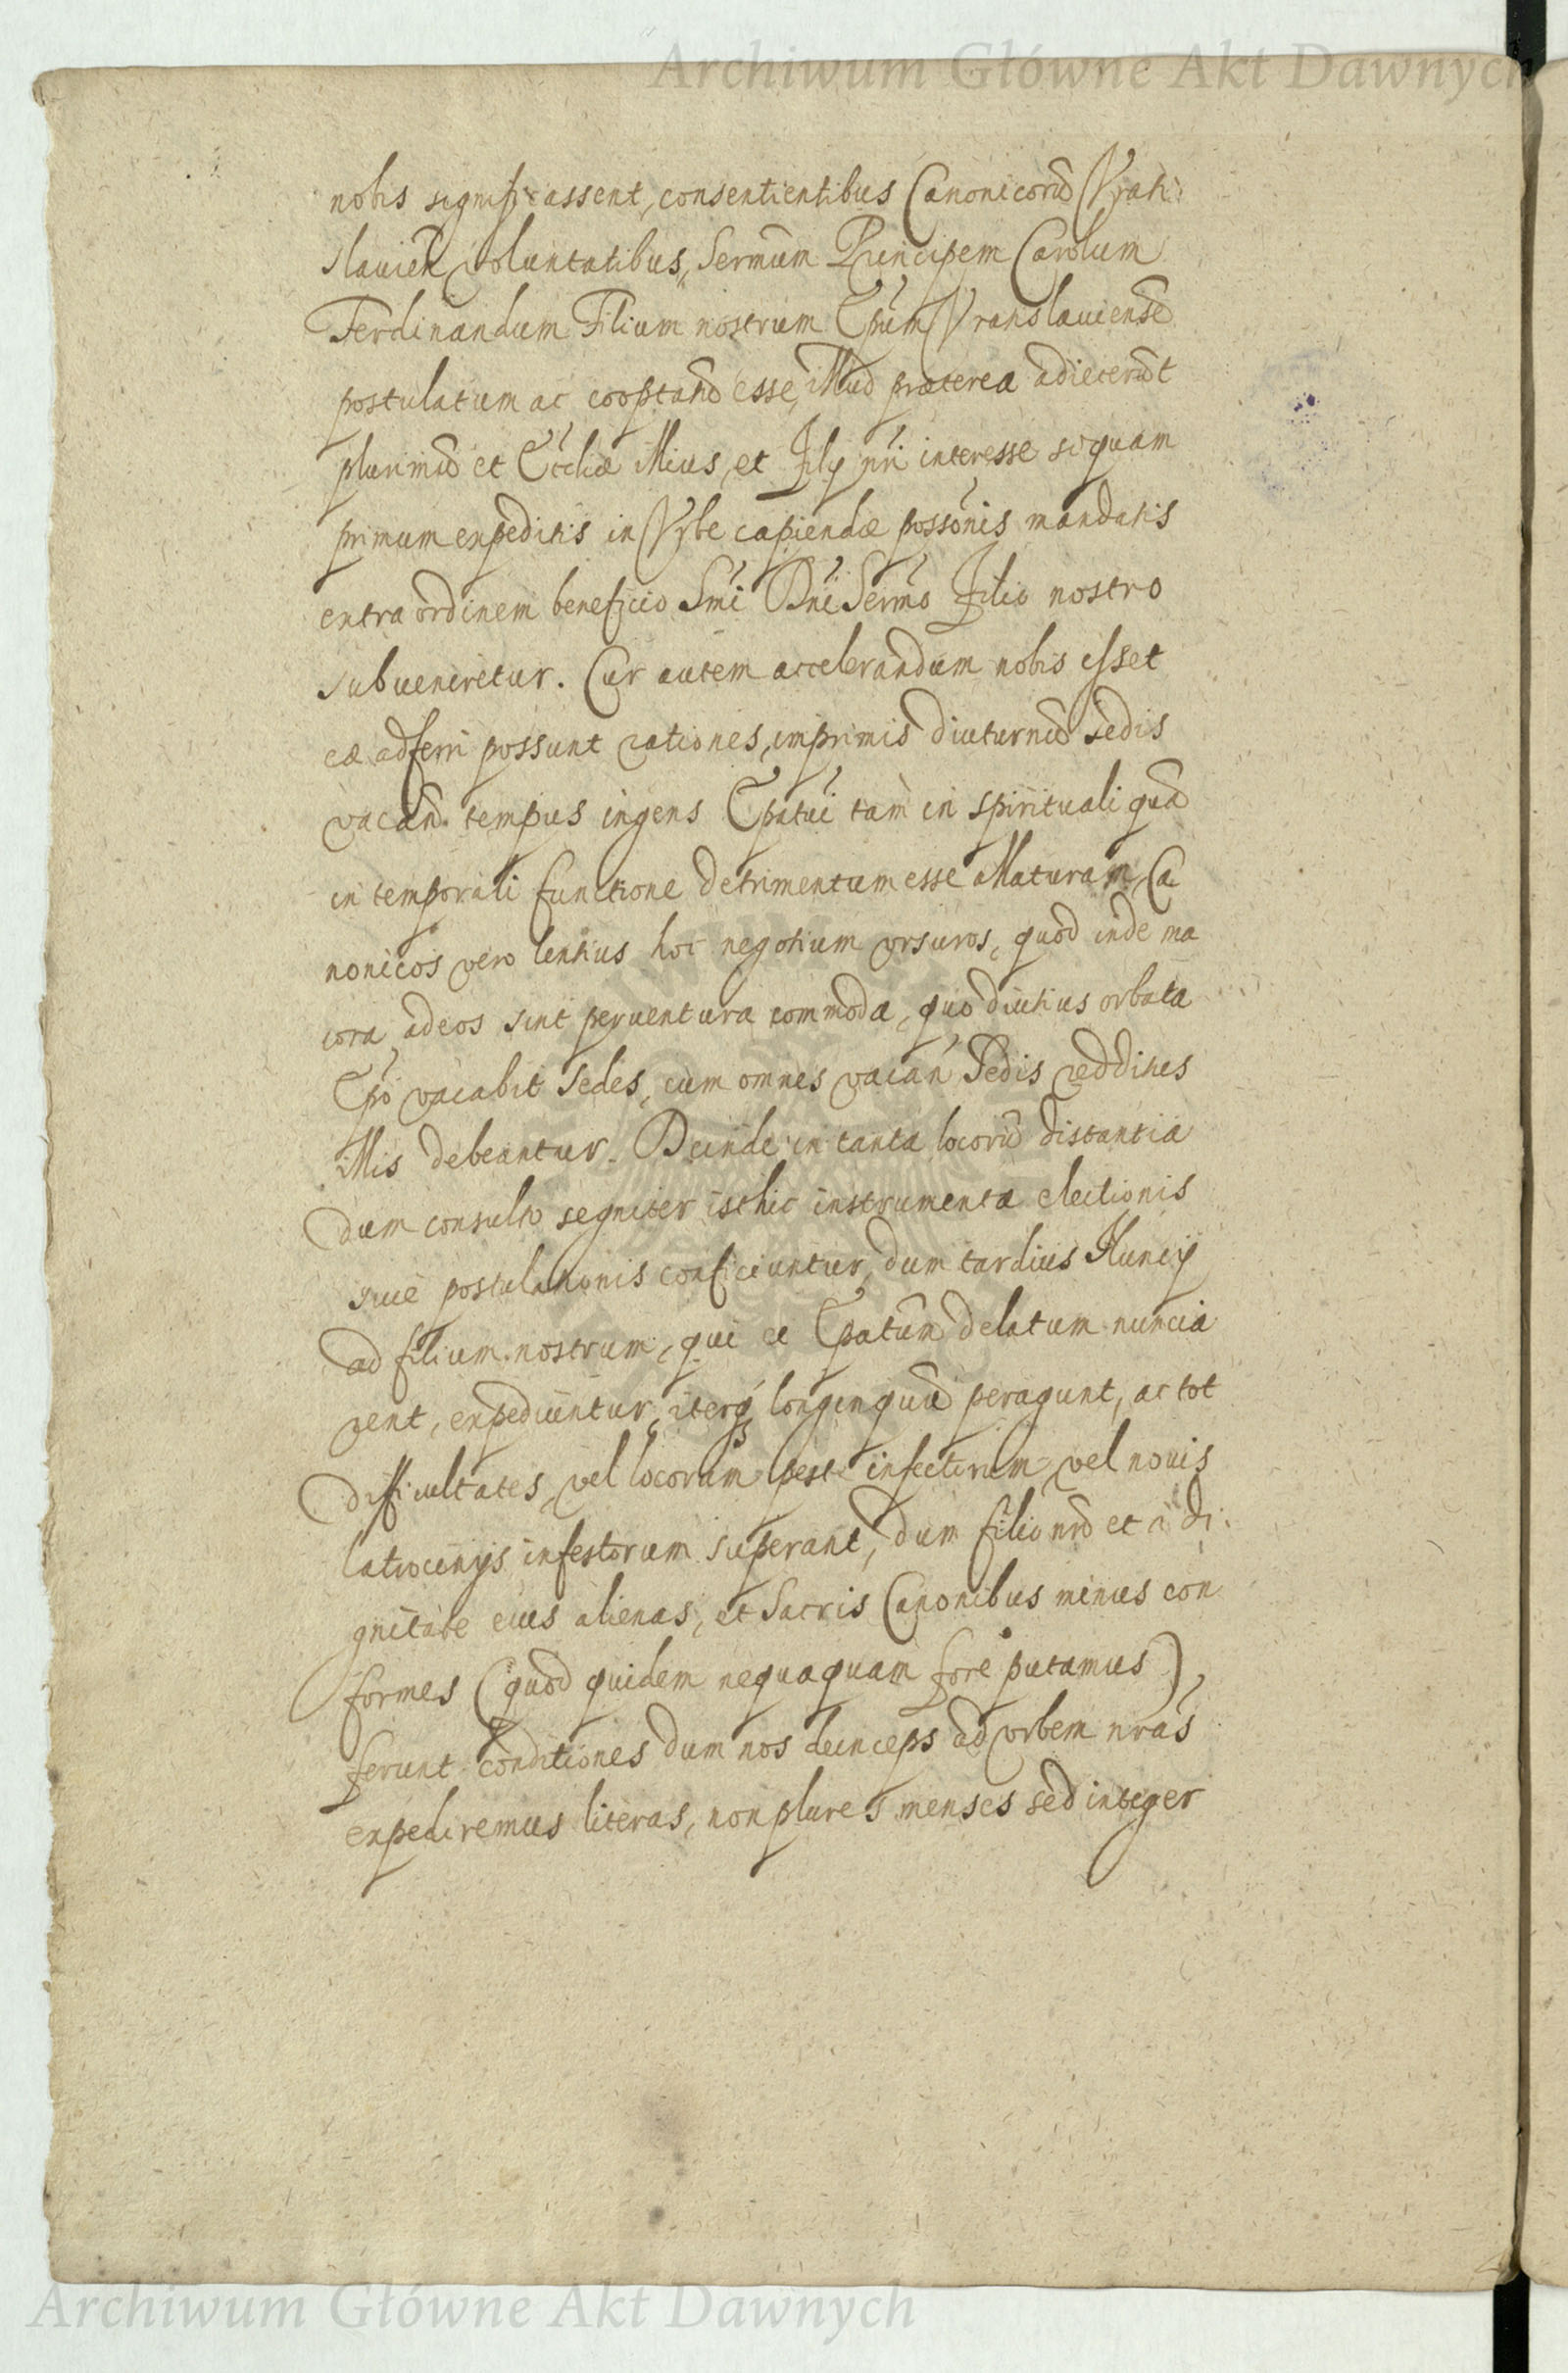 Archiwum Główne Akt Dawnych
nobis significassent, consentientibus Canonicorũ Vrati
slauien̄ voluntatibus, Sermum̃ Principem Carolum
Ferdinandum Filium nostrum Ep̃um Vranslauiensẽ
postulatum ac cooptand̃ esse, illud præterea adiecerũt
plurimũ et Eccliæ illius, et Filÿ nr̃i interesse si quam
primum expeditis in Vrbe capiendæ possõnis mandatis
extra ordinem beneficio Smi Dni Sermo Filio nostro
subueniretur. Cur autem accelerandum nobis esset
eæ adferri possunt rationes, imprimis diuturnũ Sedis
vacan̄. tempus ingens Ep̃atui tam in spirituali quã
in temporali functione detrimentum esse allaturam, Ca
nonicos vero lentius hoc negotium vrsuros, quod inde ma
iora ad eos sint peruentura commoda, quo diutius orbata
Ep̃o vacabit Sedes, cum omnes vacan̄ Sedis redditus
illis debeantur. Deinde in tanta locorũ distantia
dum consulto segniter isthic instrumenta electionis
siue postulationis conficiuntur, dum tardius Nuncÿ
ad filium nostrum, qui ei Ep̃atum̃ delatum nuncia
rent, expediuntur, iterq́ longinquũ peragunt, ac tot
difficultates, vel locorum peste infectorum vel nouis
latrocinÿs infestorum superant, dum filio nr̃o et a di
gnitate eius alienas, et Sacris Canonibus minus con
formes (quod quidem nequaquam fore putamus)
ferunt conditiones dum nos deinceps ad vrbem nr̃as
expediremus literas, non plures menses sed integer
Archiwum Główne Akt Dawnych